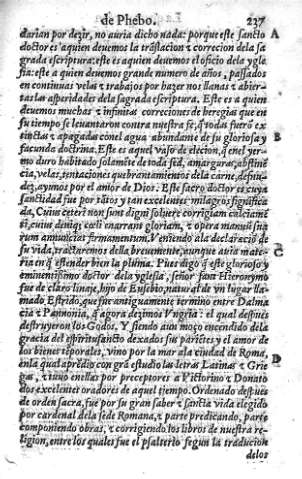 de Phebo. 237
darian por dezir, no auria dicho nada: porque este sancto A
doctor es a quien deuemos la trāslacion ⁊ correcion dela sa
grada escriptura: este es aquien deuemos el oficio dela ygle
sia: este a quien deuemos grande numero de años, passados
en continuas velas ⁊ trabajos por hazer nos llanas ⁊ abier-
tas las asperidades dela sagrada escriptura. Este es a quien
deuemos muchas ⁊ infinitas correciones de heregias que en
su tiempo se leuantaron contra nuestra fe, q̄ todas fuerō ex
tinctas ⁊ apagadas conel agua abundante de su gloriosa y B
facunda doctrina. Este es aquel vaso de elecion, q̄ enel yer-
mo duro habitado solamēte de toda sed, amargura, abstinē
cia, velas, tentaciones quebrantamientos dela carne, desnu-
dez, ayunos por el amor de Dios. Este sacro doctor es cuya
sanctidad fue por tātos y tan excelentes milagros significa
da, Cuius ceteri non sunt digni soluere corrigiam calciamē
ti, cuius deniq; coeli enarrant gloriam, ⁊ opera manuū sua
rum annunciat firmamentum. Viniendo ala declaraciō de
su vida, tractaremos della breuemente, aunque auia mate- C
ria en q̄ estender bien la pluma. Pues digo q̄ este glorioso y
eminentissimo doctor dela yglesia, señor sant Hieronymo
fue de claro linaje, hijo de Eusebio, natural de vn lugar lla-
mado Estrido, que fue antiguamente termino entre Dalma
cia ⁊ Pannonia, q̄ agora dezimos Vngria: el qual despues
destruyeron los Godos. Y siendo aun moço encendido dela
gracia del espiritusancto dexados sus pariētes y el amor de
los bienes tēporales, vino por la mar ala ciudad de Roma, D
enla qual apredio con grā estudio las letras Latinas ⁊ Grie
gas, ⁊ tuuo enellas por preceptores a Victorino ⁊ Donato
dos excelentes oradores de aquel tiempo. Ordenado despues
de orden sacra, fue por su gran saber ⁊ sancta vida elegido
por cardenal dela sede Romana, ⁊ parte predicando, parte
componiendo obras, ⁊ corrigiendo los libros de nuestra re-
ligion, entre los quales fue el psalterio segun la traducion
delos